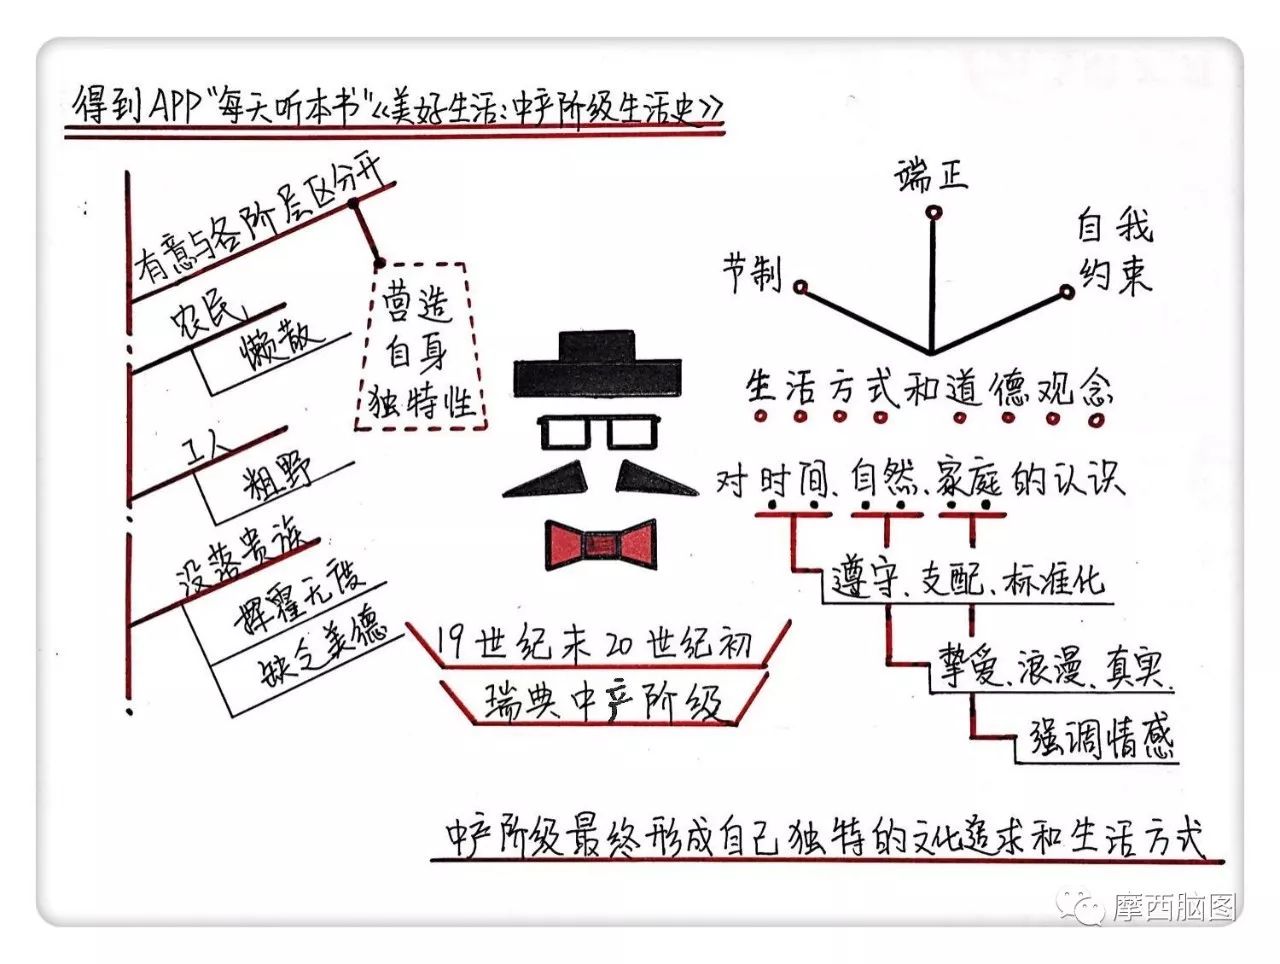 得到APP"每天听本书"《美好生活:中产阶级生活史》
有意与各阶层区分开
营造
自身
独特性
农民
懒散
工人
粗野
没落贵族
挥霍无度
缺乏美德
19世纪末20世纪初
瑞典中产阶级
端正
节制
自我
约束
生活方式和道德观念
对时间、自然、家庭的认识
遵守、支配、标准化
挚爱、浪漫、真实
强调情感
中产阶级最终形成自己独特的文化追求和生活方式
摩西脑图